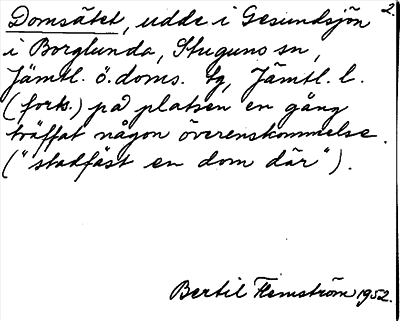 2.
Domsätet, udde i Gesundsjön
i Borglunda, Stuguns sn,
Jämtl. ö. doms. tg, Jämtl. l.
(forts.) på platsen en gång
träffat någon överenskommelse.
("stadfäst en dom där").
Bertil Flemström 1952.